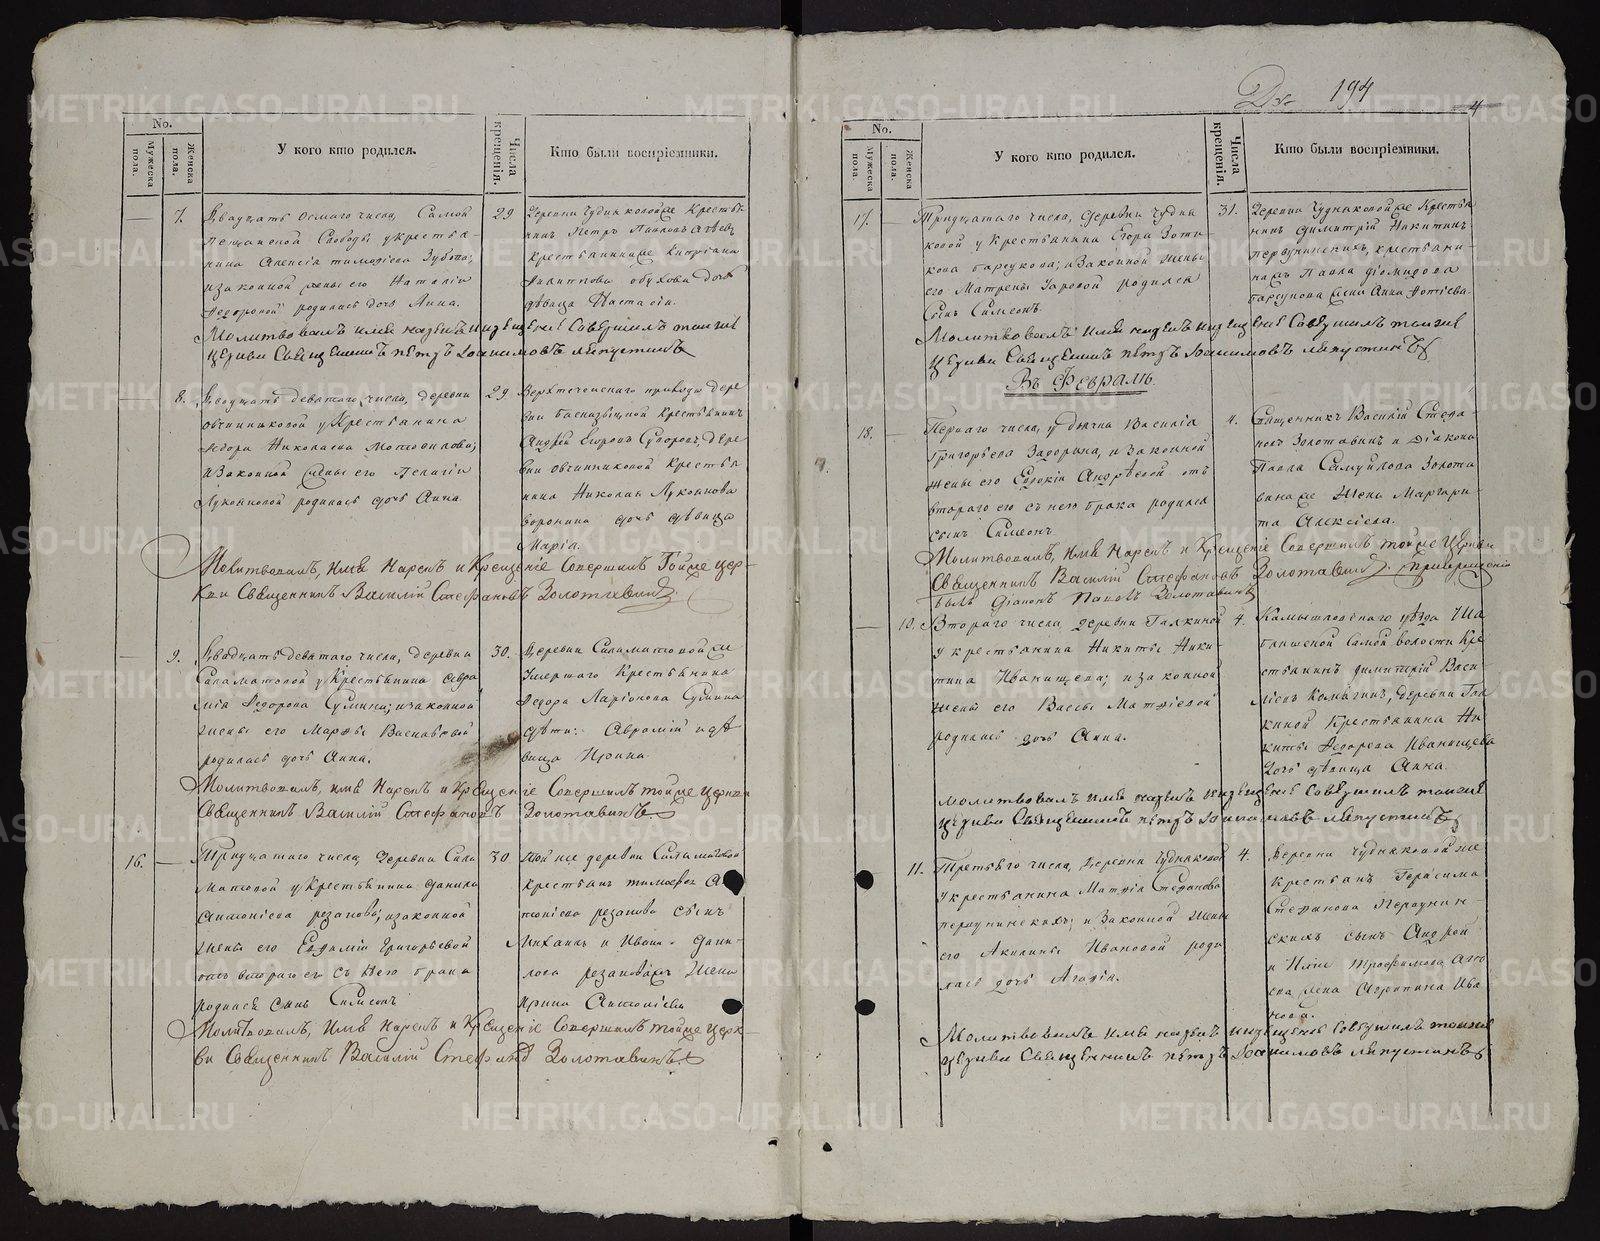 No.
Мужеска пола.
Женска пола.
У кого кто родился.
Числа крещенія.
Кто были воспріемники.
7.
Двадцать осмаго числа, Самой
Пещанской Слободы у крестья-
нина Алексія Тимофіева Зубова,
и законной жены его Наталіи
Федоровой родилась дочь Анна.
29
Деревни Чудняковой же Крестья-
нинъ Петръ Павловъ
крестьянина же Кипріана
Филиппова Обухова дочь
дѣвица Настасія.
Молитвовалъ имя нарекъ и крещеніе совершилъ тояже
церкви Священникъ Петръ Іоакимовъ Ляпустинъ
8.
Двадцать девятаго числа, деревни
Овчинниковой у Крестьянина
Ѳедора Николаева
и Законной жены его Пелагіи
Лукояновой родилась дочь Анна.
29
Верхтеченскаго прихода дере
вни Басказыцкой Крестьянинъ
Андрей Егоровъ Суворовъ, дере
вни Овчинниковой Крестья
нина Николая Лукоянова
Воронина дочь дѣвица
Марія.
Молитвовалъ, имя нарекъ и Крещеніе Совершилъ Тойже цер-
кви Священникъ Василій Стефановъ Золотавинъ
9.
Двадцать девятаго числа, деревни
Саламатовой у Крестьянина Авра
мія Ѳедорова Сулина; и законной
жены его Марѳы Васильевой
родилась дочь Анна.
30.
Деревни Саламатовой же
Умершаго Крестьянина
Ѳедора Ларіонова Сулина
дѣти: Аврамій и дѣ
вица Ирина
Молитвовалъ, имя Нарекъ и Крещеніе Совершилъ тойже церкви
Священникъ Василій Стефановъ Золотавинъ
16.
Тридцатаго числа, Деревни Сала
матовой у Крестьянина Данила
Антоніева Резанова; и законной
жены его Евфиміи Григорьевой
отъ втораго его съ нею брака
родился сынъ Симеонъ
30
Той же деревни Саламатовой
крестьян Тимофея Ан
тоніева Резанова сынъ
Михаилъ и Ивана Дани-
лова Резановыхъ жена
Ирина Антоніева
Молитвовалъ, Имя Нарекъ и Крещеніе Совершилъ тойже церк-
ви Священникъ Василій Стефановъ Золотавинъ
194
4
No.
Мужеска пола.
Женска пола.
У кого кто родился.
Числа крещенія.
Кто были воспріемники.
17.
Тридцатаго числа, деревни Чудня
ковой у Крестьянина Егора Зоти
кова Барсукова; и Законной жены
его Матрены Заровой родился
Сынъ Симеонъ.
31.
Деревни Чудняковой же Крестья
нинъ Димитрій Никитинъ
Первунинскихъ, крестьяни-
на Павла Діомидова
Барсукова жена Анна Фотіева.
Молитвовалъ имя нарекъ и крещеніе совершилъ тояже
церкви Священникъ Петръ Іоакимовъ Ляпустинъ
Въ Февралѣ.
18.
Перваго числа, у дьячка Василія
Григорьева Задорина, и законной
жены его Евдокіи Андрѣевой отъ
втораго его съ нею брака родился
сынъ Симеонъ
4.
Священникъ Василій Стефа-
новъ Золотавинъ и діакона
Павла Самуйлова Золота
вина же жена Маргари-
та Алексіева.
Молитвовалъ, имя Нарекъ и Крещеніе Совершилъ тойже Церкви
Священникъ Василій Стефановъ Золотавинъ. При крещеніи
былъ Діаконъ Павелъ Золотавинъ
10.
Втораго числа, деревни Галкиной
у крестьянина Никиты Ники-
тина Иванищева; и законной
жены его Вассы Матфіевой
родилась дочь Анна.
4.
Камышловскаго уѣзда Ша
блишской Самой волости Кре
стьянинъ Димитрій Васи-
ліевъ Калягинъ, деревни Гал
киной Крестьянина Ни
киты Ѳедорова Иванищева
дочь дѣвица Анна.
Молитвовалъ имя нарекъ и крещеніе совершилъ тояже
церкви Священникъ Петръ Іоакимовъ Ляпустинъ
11.
Третьяго числа, деревни Чудняковой
у крестьянина Матфія Стефанова
Первунинскихъ; и Законной жены
его Акилины Ивановой роди
лась дочь Агафія.
4.
Деревни Чудняковой же
Крестьянъ Герасима
Стефанова Первунин-
скихъ сынъ Андрей
и Иліи Трофимова
жена Агрипина Ива
нова.
Молитвовалъ имя нарекъ и крещеніе совершилъ тояже
церкви Священникъ Петръ Іоакимовъ Ляпустинъ
METRIKI.GASO-URAL.RU